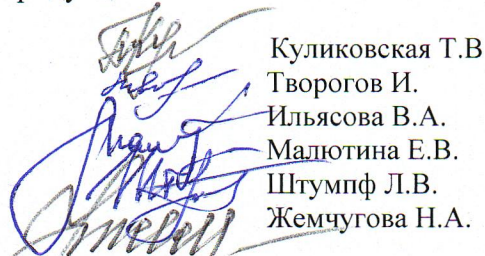 Куликовская Т.В
Творогов И.
Ильясова В.А.
Малютина Е.В.
Штумпф Л.В.
Жемчугова Н.А.